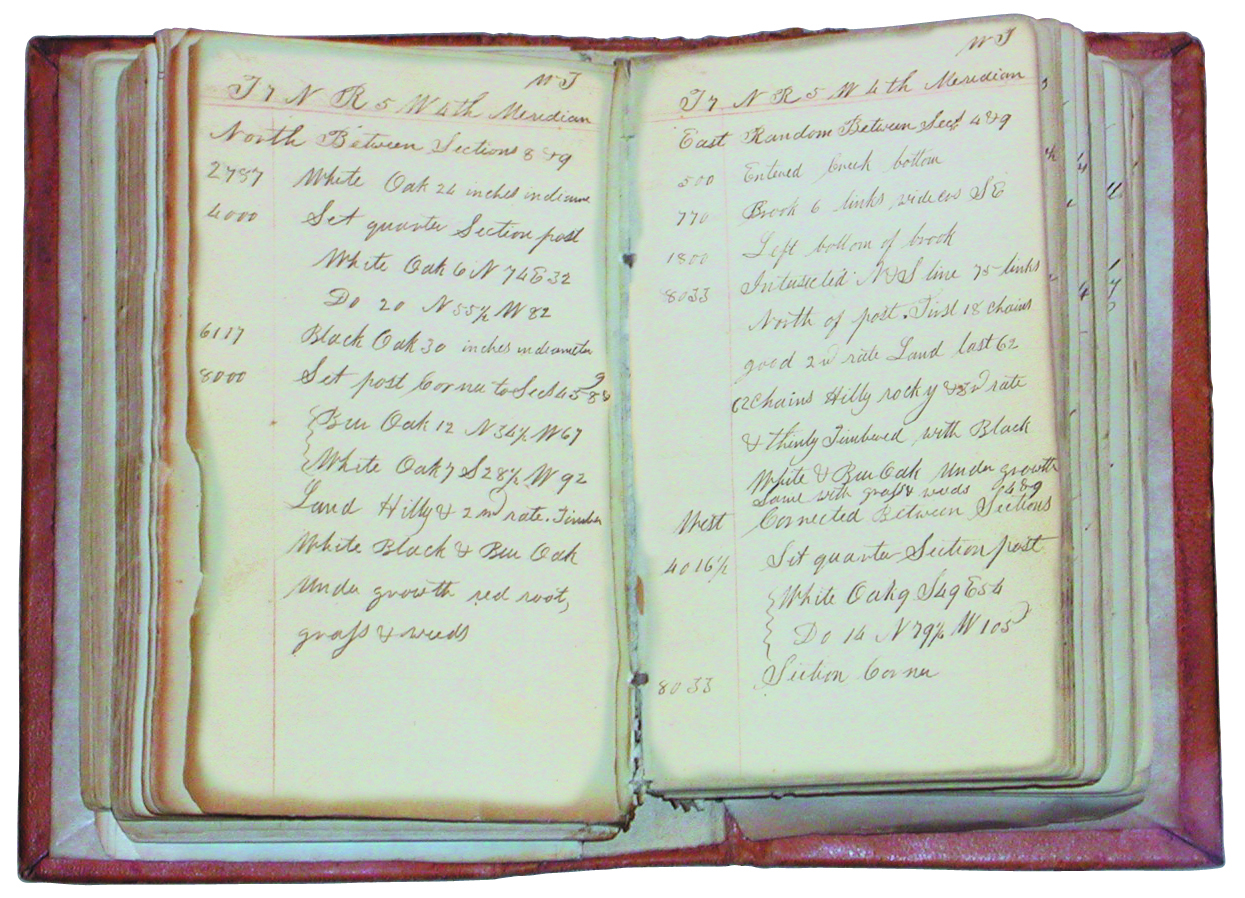 WT
T 7 N R 5 W 4th Meridian
North Between Sections 8 & 9
2787 White Oak 24 inches in
4000 Set quarter Section post
White Oak 6 N 74 E 32
Do 20 N 55½ W 82
6117 Black Oak 30 inches in diameter
8000 Set post Corner to Sects 4 5 8 & 9
Bur Oak 12 N 34½ W 67
White Oak 7 S 28½ W 92
Land Hilly & 2nd rate. Timber
White Black & Bur Oak
Under growth red root,
grass & weeds
WT
T 7 N R 5 W 4th Meridian
East Random Between Sects 4 & 9
500 Entered Creek bottom
770 Brook 6 links wide SE
1800 Left bottom of brook
8033 Intersected N & S line 75 links
North of post. First 18 chains
good 2nd rate Land last 62
62 Chains Hilly rocky & 3rd rate
& thinly Timbered with Black
White & Bur Oak Under growth
Same with grass & weeds 4 & 9
West Corrected Between Sections
4016½ Set quarter Section post
White Oak 9 S 49 E 54
Do 14 N 79½ W 105
8033 Section Corner